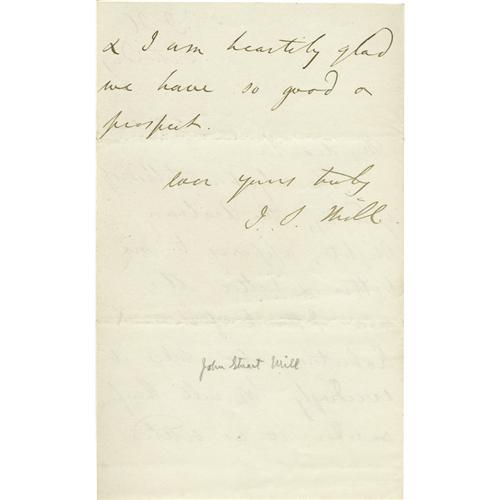 & I am heartily glad
we have so good a
prospect.
ever yours truly
J. S. Mill.
John Stuart Mill